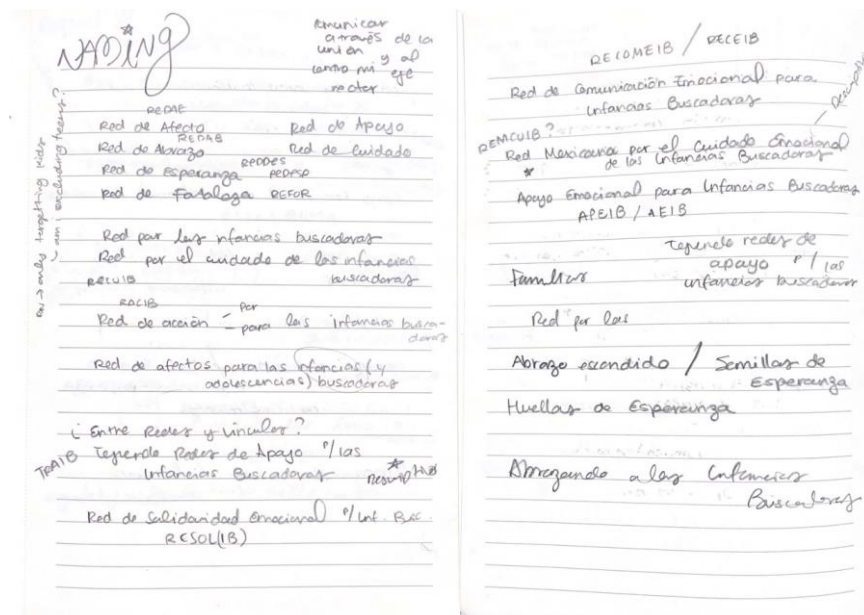 NAMING
comunicar
a través de la
unión y al
centro mi eje
rector
only targetting kids
am i excluding teens?
REDAF
Red de Afecto
Red de Apoyo
REDAB
Red de Abrazo
Red de Cuidado
REDDES
Red de Esperanza REDESP
Red de Fortaleza REFOR
Red por las infancias buscadoras
Red por el cuidado de las infancias
buscadoras
RECUIB
RACIB
Red de acción - por
- para las infancias busca-
doras
Red de afectos para las infancias (y
adolescencias) buscadoras
¿Entre Redes y vínculos?
TRAIB Tejiendo Redes de Apoyo p/las
Infancias Buscadoras
Red de Solidaridad Emocional p/Inf. Bus.
RESOL(IB)
RECOMEIB / RECEIB
Red de Comunicación Emocional para
Infancias Buscadoras
REMCUIB?
Red Mexicana por el Cuidado Emocional
de las Infancias Buscadoras
Apoyo Emocional para Infancias Buscadoras
APEIB / AEIB
Tejiendo redes de
apoyo p/las
infancias buscadoras
Familias
Red por las
Abrazo escondido / Semillas de
Esperanza
Huellas de Esperanza
Abrazando a las Infancias
Buscadoras